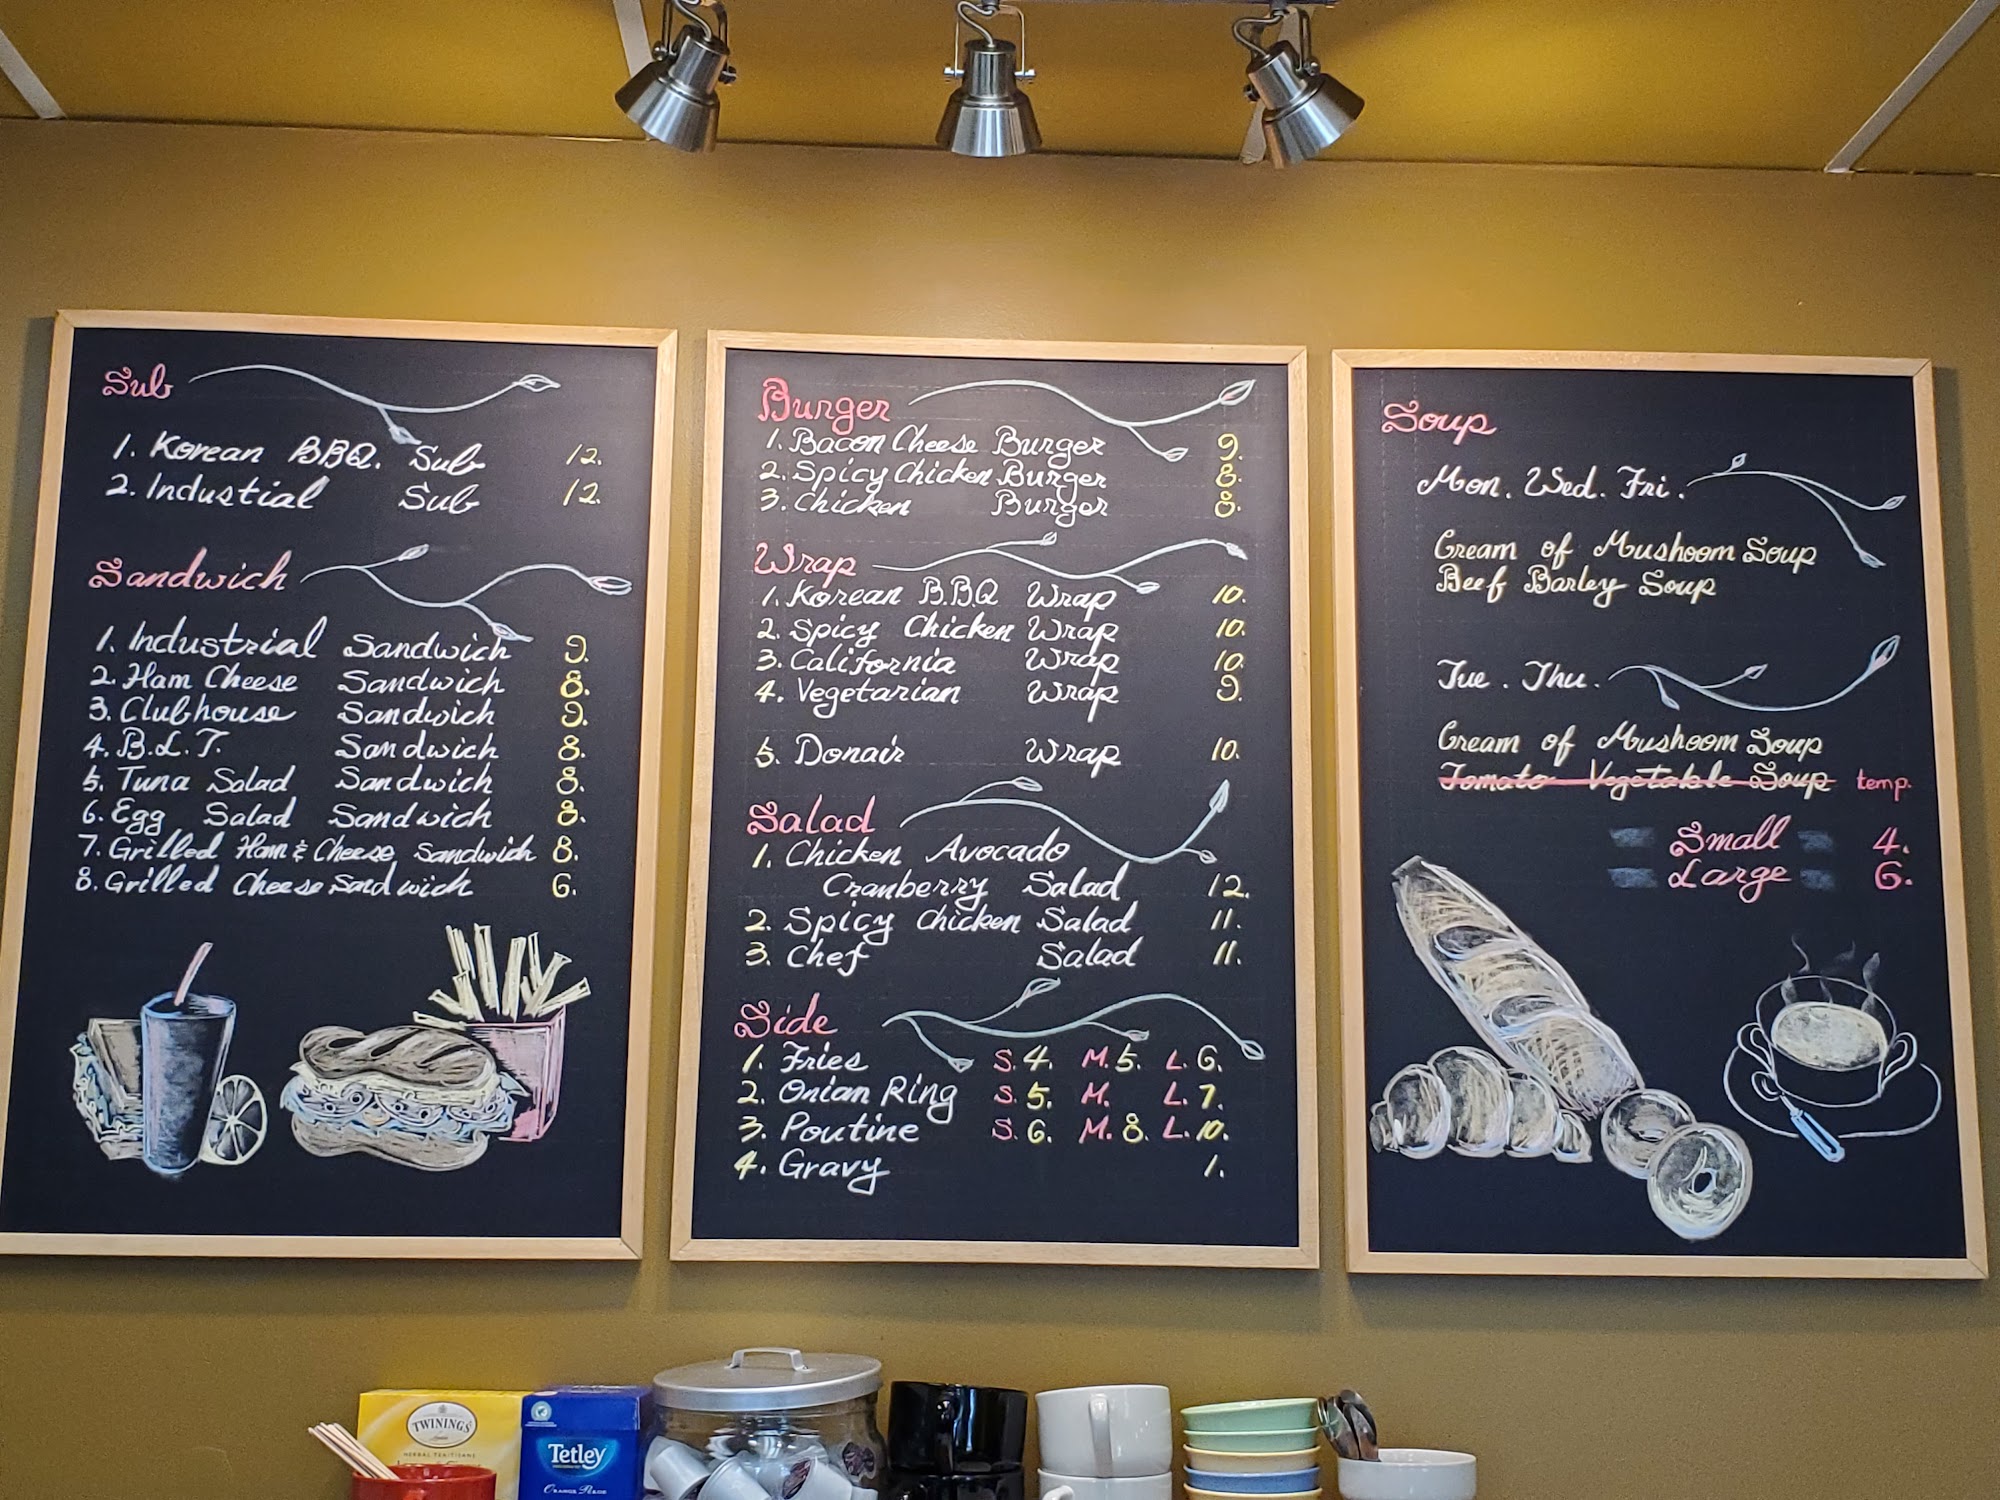 Sub
1. Korean B.B.Q. Sub 12.
2. Industial Sub 12.
Sandwich
1. Industrial Sandwich 9.
2. Ham Cheese Sandwich 8.
3. Clubhouse Sandwich 9.
4. B.L.T. Sandwich 8.
5. Tuna Salad Sandwich 8.
6. Egg Salad Sandwich 8.
7. Grilled Ham & Cheese Sandwich 8.
8. Grilled Cheese Sandwich 6.
Burger
1. Bacon Cheese Burger 9.
2. Spicy Chicken Burger 8.
3. Chicken Burger 8.
Wrap
1. Korean B.B.Q Wrap 10.
2. Spicy Chicken Wrap 10.
3. California Wrap 10.
4. Vegetarian Wrap 9.
5. Donair Wrap 10.
Salad
1. Chicken Avocado
Cranberry Salad 12.
2. Spicy Chicken Salad 11.
3. Chef Salad 11.
Side
1. Fries S. 4. M. 5. L. 6.
2. Onian Ring S. 5. M. L. 7.
3. Poutine S. 6. M. 8. L. 10.
4. Gravy 1.
Soup
Mon. Wed. Fri.
Cream of Mushoom Soup
Beef Barley Soup
Tue. Thu.
Cream of Mushoom Soup
Tomato Vegetable Soup temp.
Small 4.
Large 6.
TWININGS
HERBAL TEA·TISANE
Tetley
ORANGE PEKOE